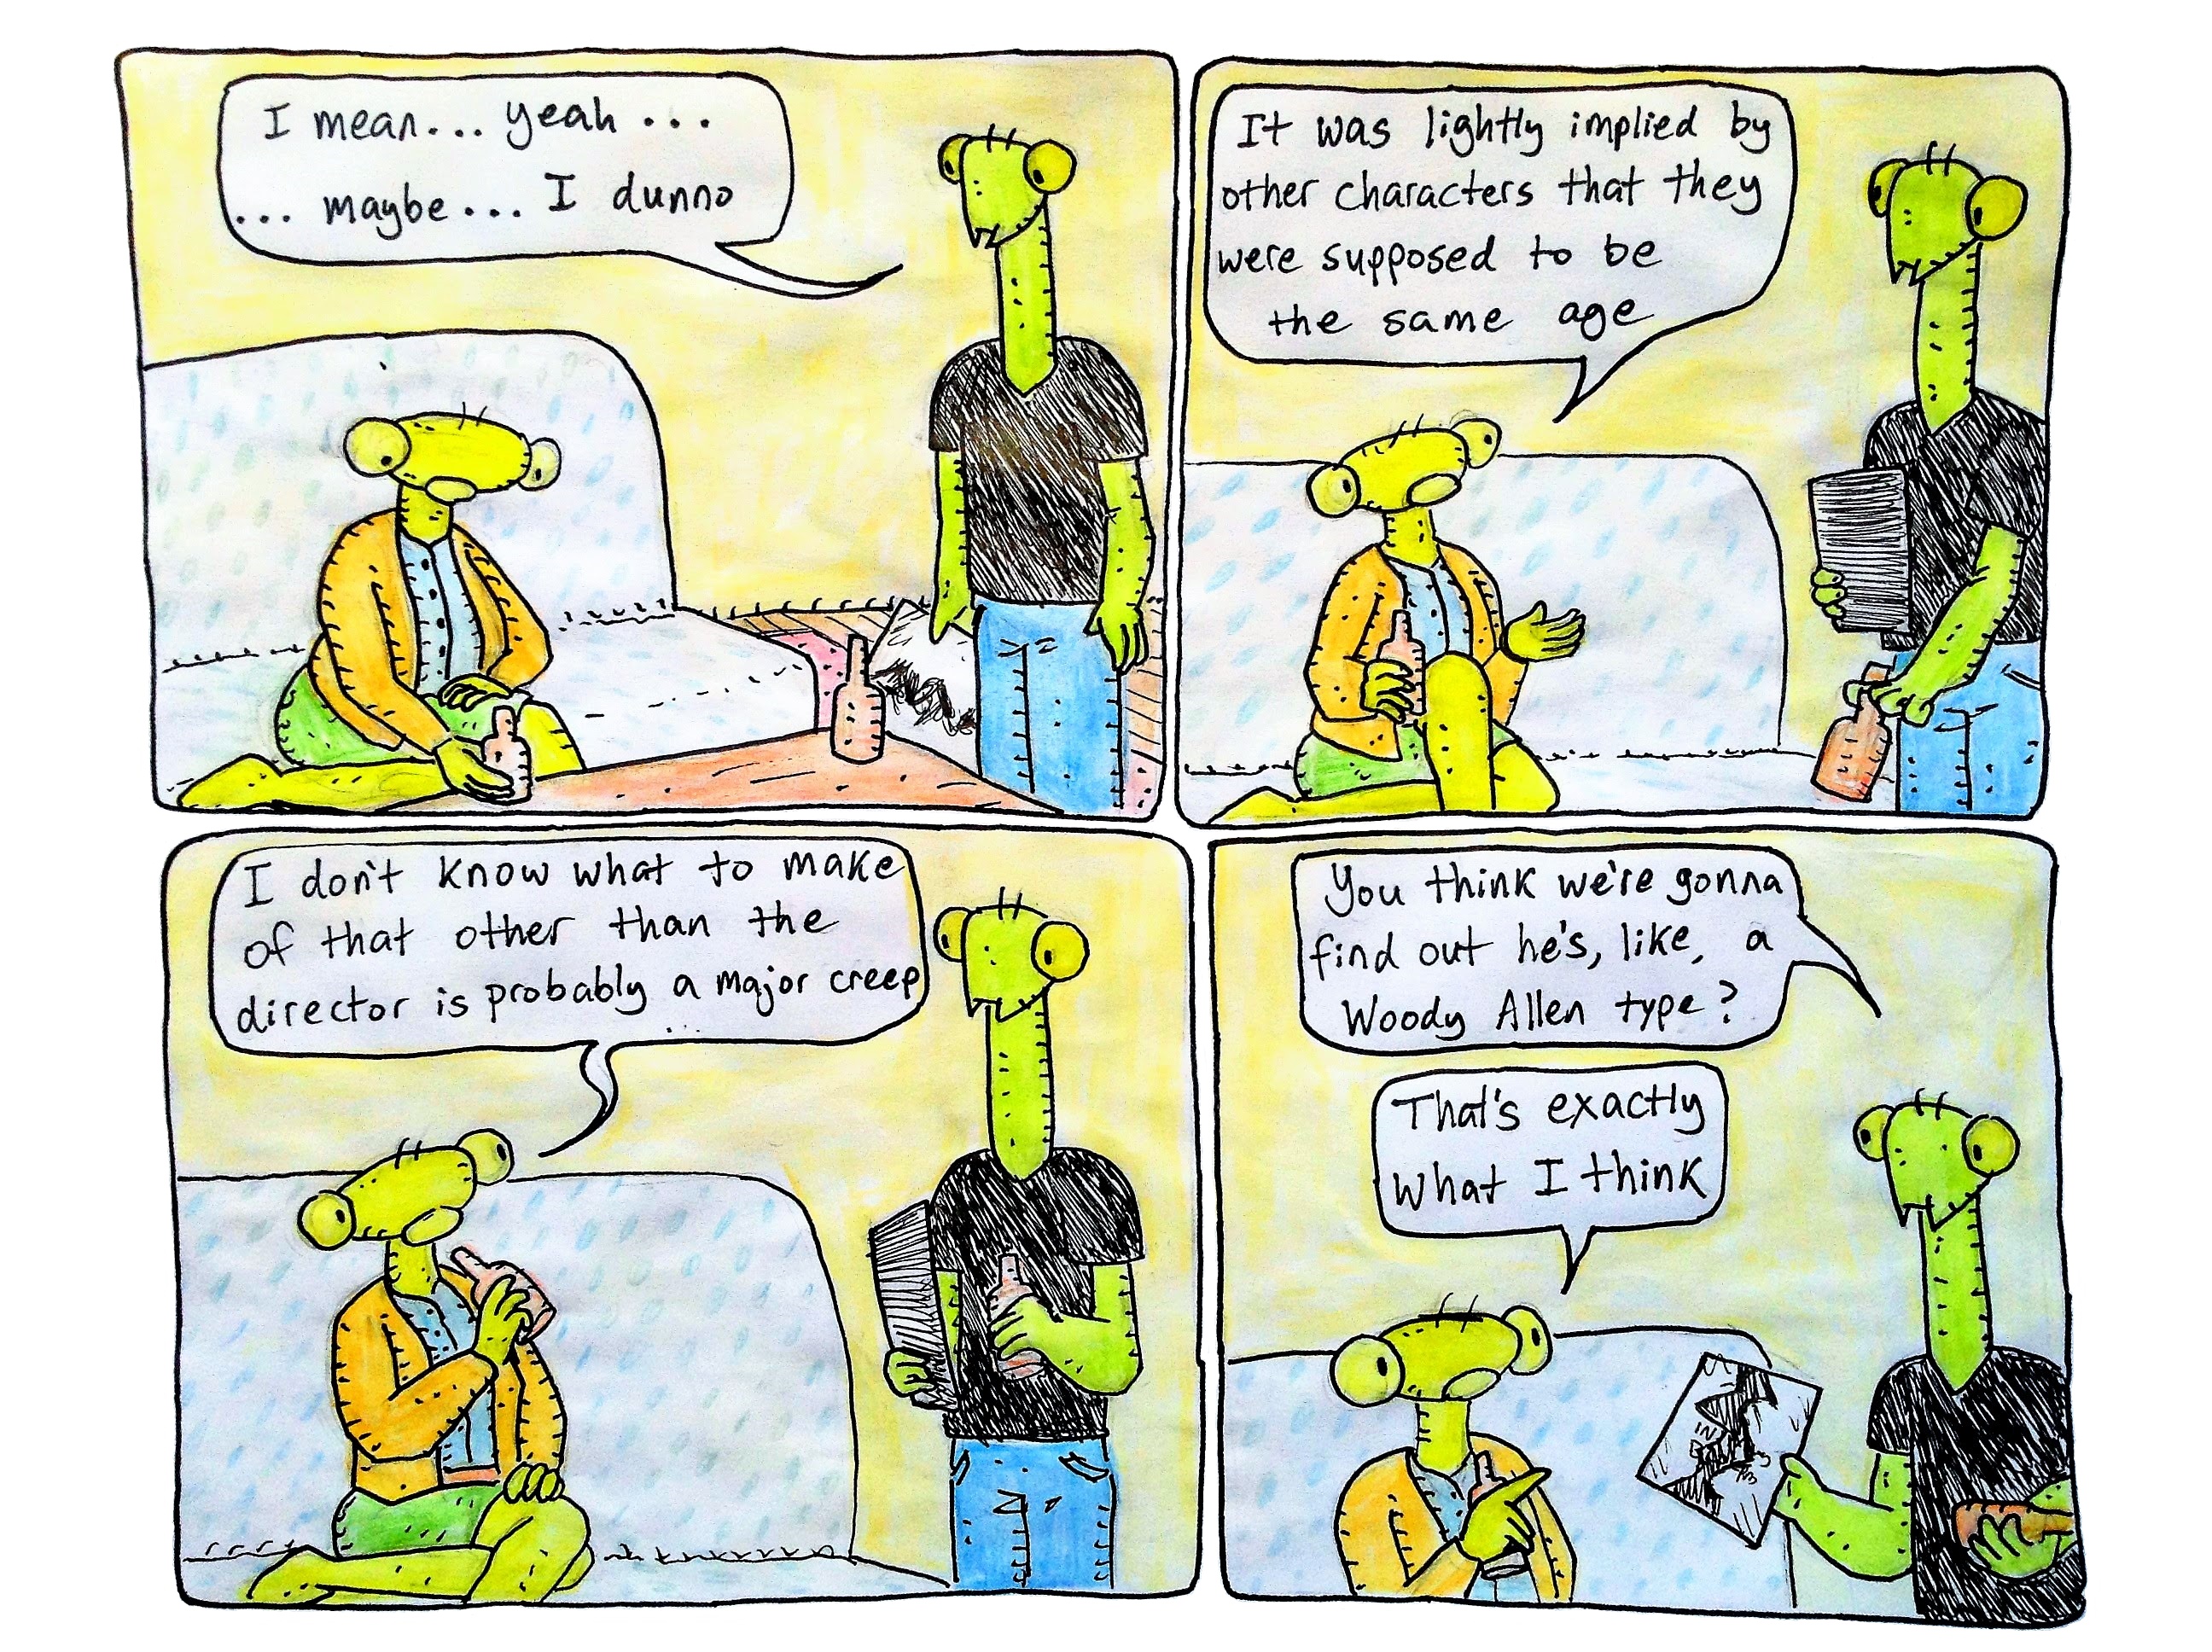 I mean... yeah...
... maybe... I dunno
It was lightly implied by
other characters that they
were supposed to be
the same age
I don't know what to make
of that other than the
director is probably a major creep
...
You think we're gonna
find out he's, like, a
Woody Allen type?
That's exactly
what I think
IN